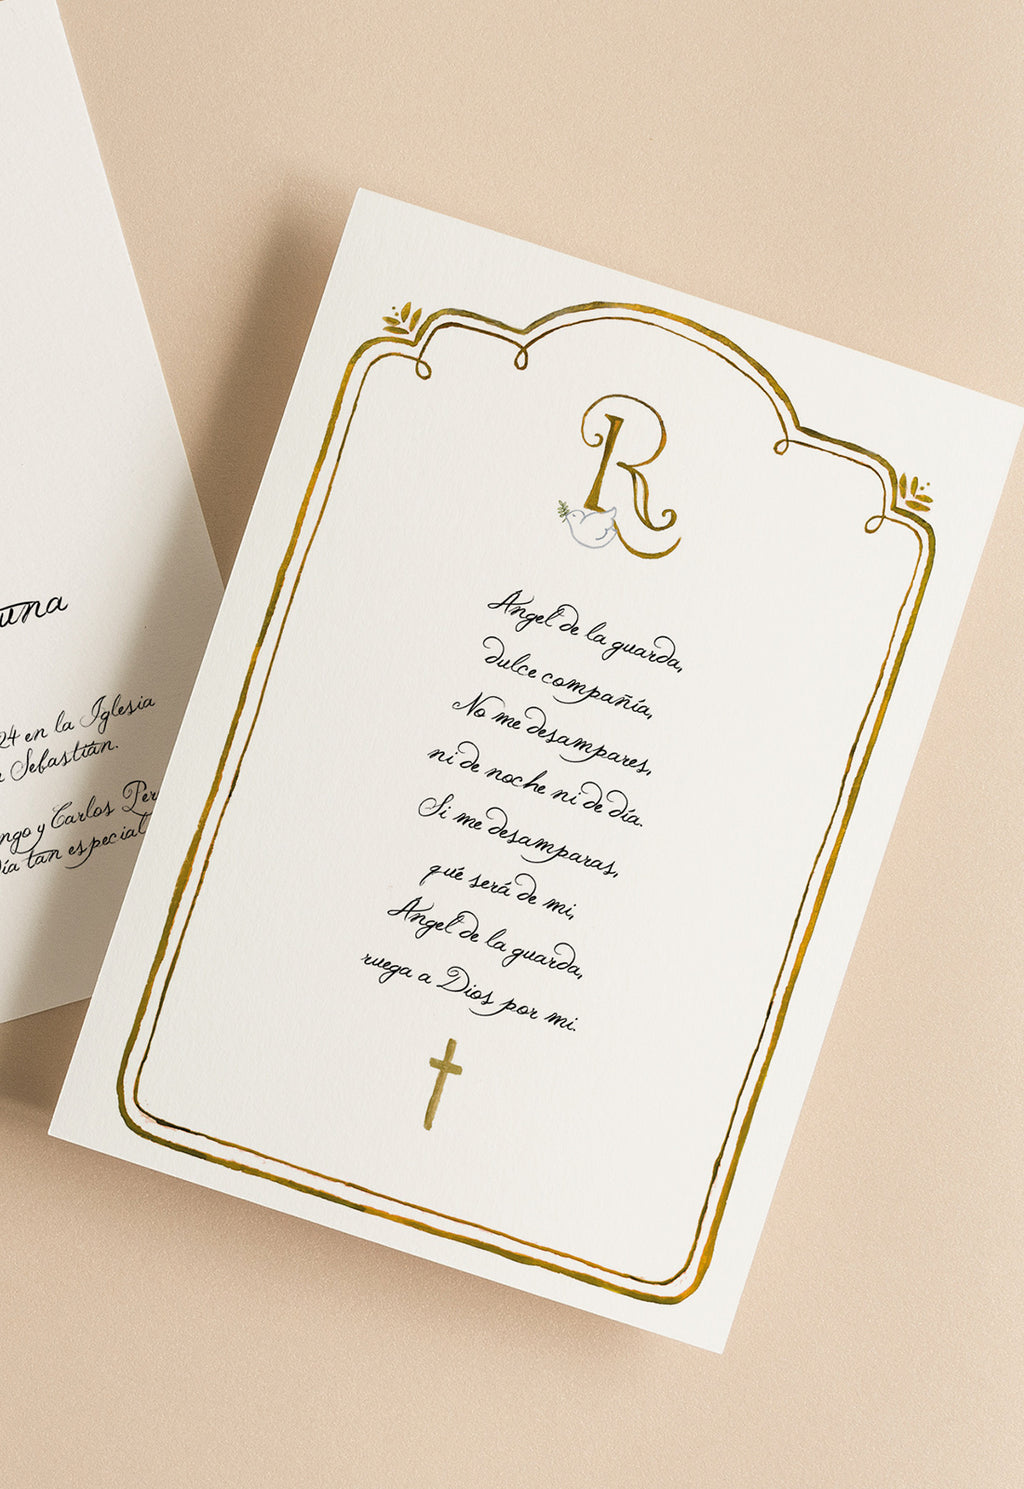 una
24 en la Iglesia
Sebastián.
y Carlos
tan especial
R
Angel de la guarda,
dulce compañía,
No me desampares,
ni de noche ni de día.
Si me desamparas,
qué será de mi,
Angel de la guarda,
ruega a Dios por mi.